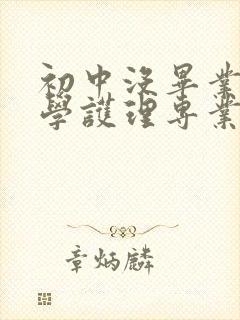 初中沒畢業
學護理專業
章炳麟